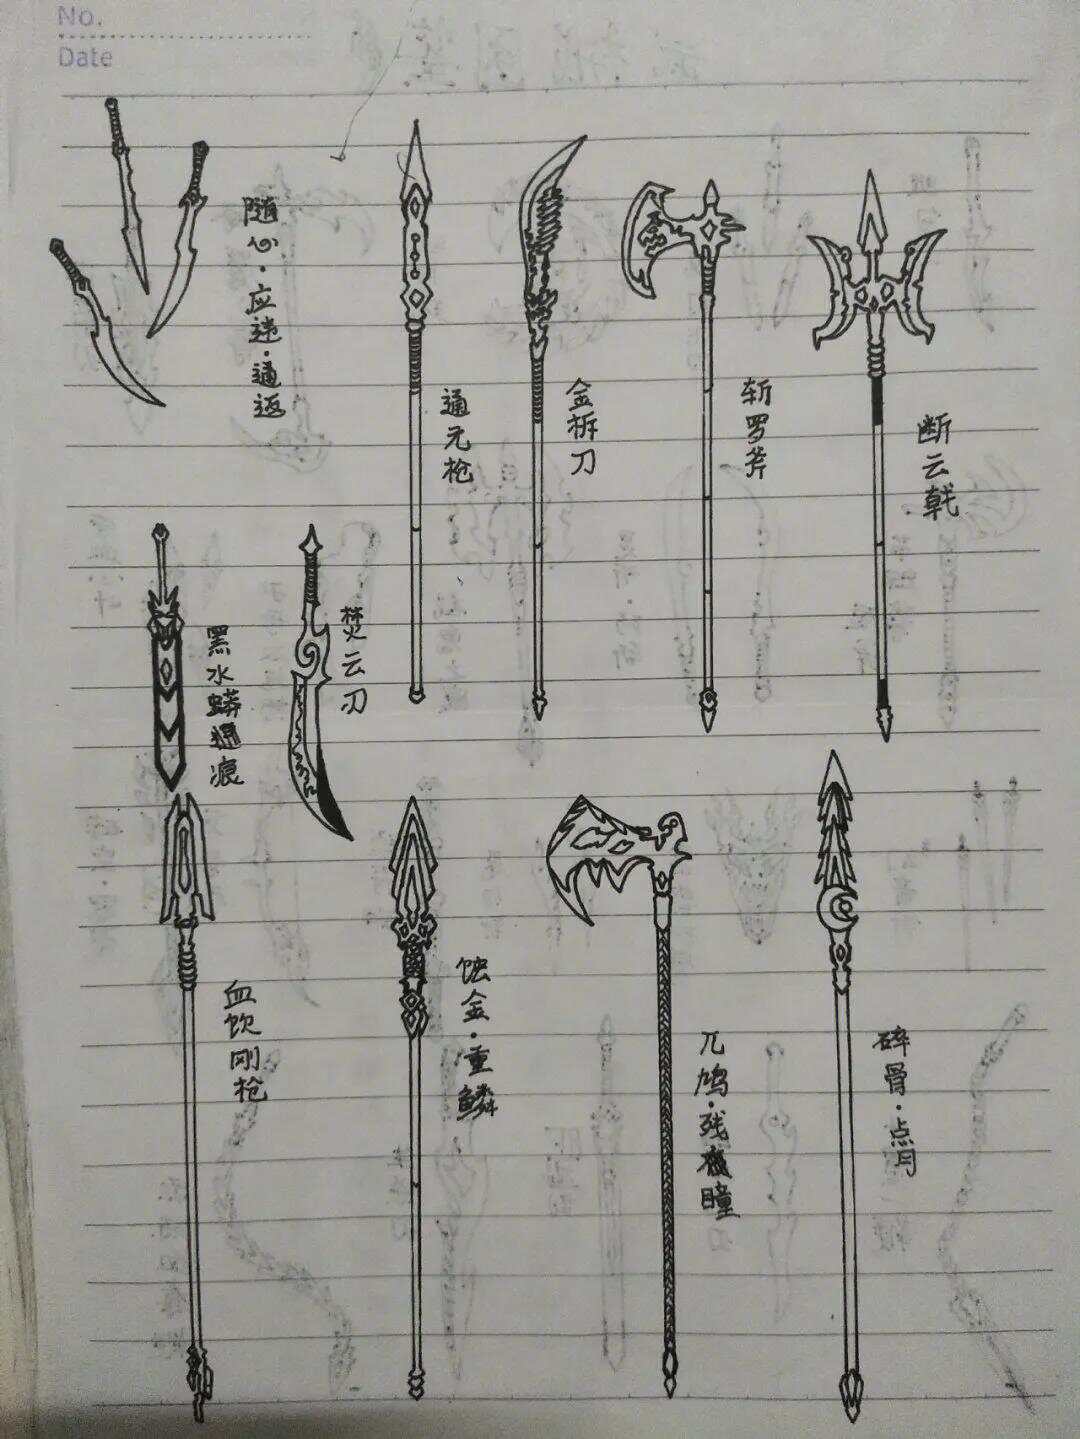 No.
Date
随心·应迷·通返
通元枪
金柝刀
斩罗斧
断云戟
黑水蟒通痕
焚云刃
血饮刚枪
蚀金·重鳞
兀鸠·残夜瞳
碎骨·点月